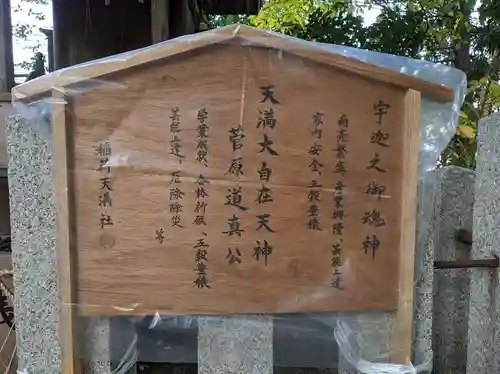 宇迦之御魂神
商売繁盛、産業興隆、芸能上達
家内安全、五穀豊穣
天満大自在天神
菅原道真公
学業成就、合格祈願、五穀豊穣
芸能上達、厄除除災
等
稲荷天満社